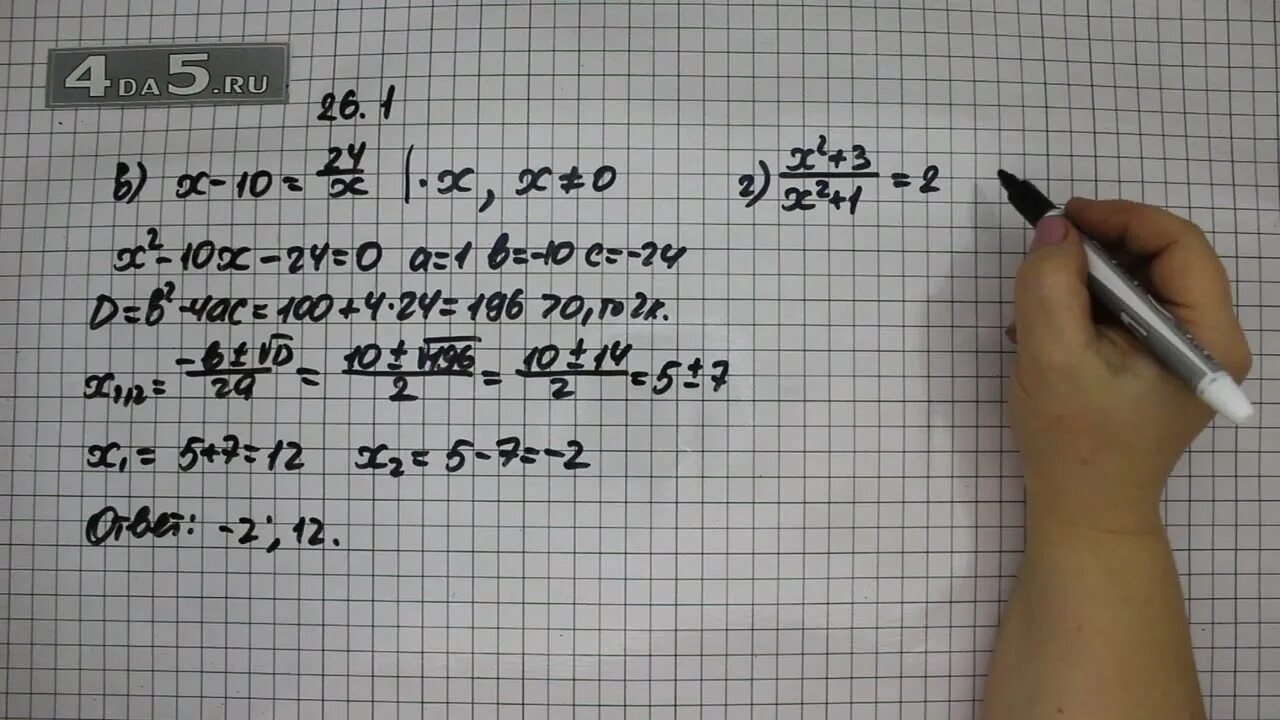 4DA5.RU
26.1
в) x-10 = 24/x |·x, x≠0
x²-10x-24=0 a=1 b=-10 c=-24
D=b²-4ac=100+4·24=196 >0, то 2к.
x₁,₂= (-b±√D)/2a = (10±√196)/2 = (10±14)/2 = 5±7
x₁= 5+7=12 x₂= 5-7=-2
Ответ: -2; 12.
г) (x²+3)/(x²+1) = 2